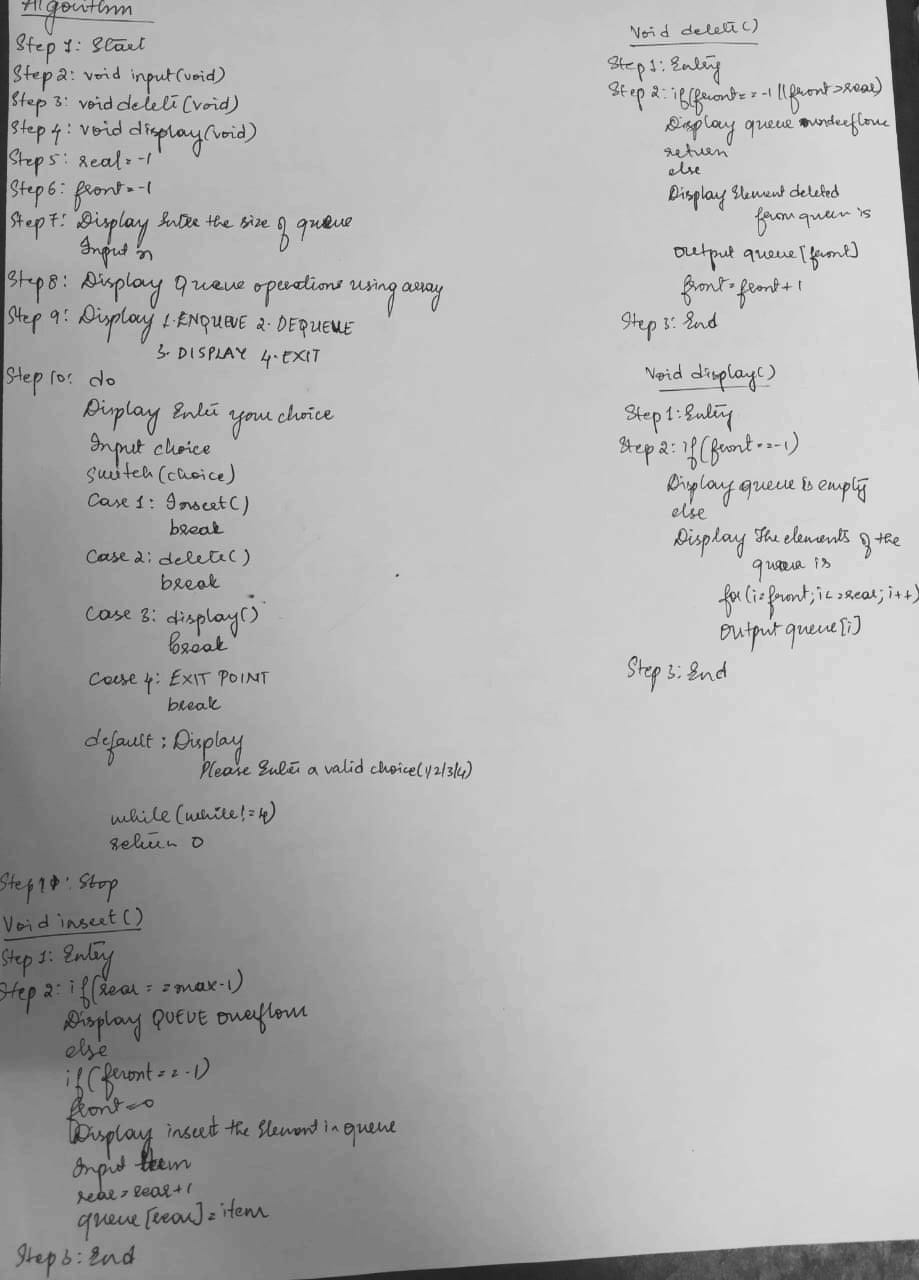 Algorithm
Step 1: Start
Step 2: void input(void)
Step 3: void delete(void)
Step 4: void display(void)
Step 5: rear=-1
Step 6: front=-1
Step 7: Display Enter the size of queue
Input n
Step 8: Display Queue operations using array
Step 9: Display 1.ENQUEUE 2. DEQUEUE
3. DISPLAY 4. EXIT
Step 10: do
Display Enter your choice
Input choice
switch(choice)
Case 1: Insert()
break
Case 2: delete()
break
Case 3: display()
break
Case 4: EXIT POINT
break
default: Display
Please Enter a valid choice(1/2/3/4)
while(while!=4)
return 0
Step 11: Stop
Void insert()
Step 1: Entry
Step 2: if(rear==max-1)
Display QUEUE overflow
else
if(front==-1)
front=0
Display insert the Element in queue
Input item
rear=rear+1
queue[rear]=item
Step 3: End
Void delete()
Step 1: Entry
Step 2: if(front==-1||front>rear)
Display queue underflow
return
else
Display Element deleted
from queen is
output queue[front]
front=front+1
Step 3: End
Void display()
Step 1: Entry
Step 2: if(front==-1)
Display queue is empty
else
Display The elements of the
queue is
for(i=front;i<=rear;i++)
Output queue[i]
Step 3: End